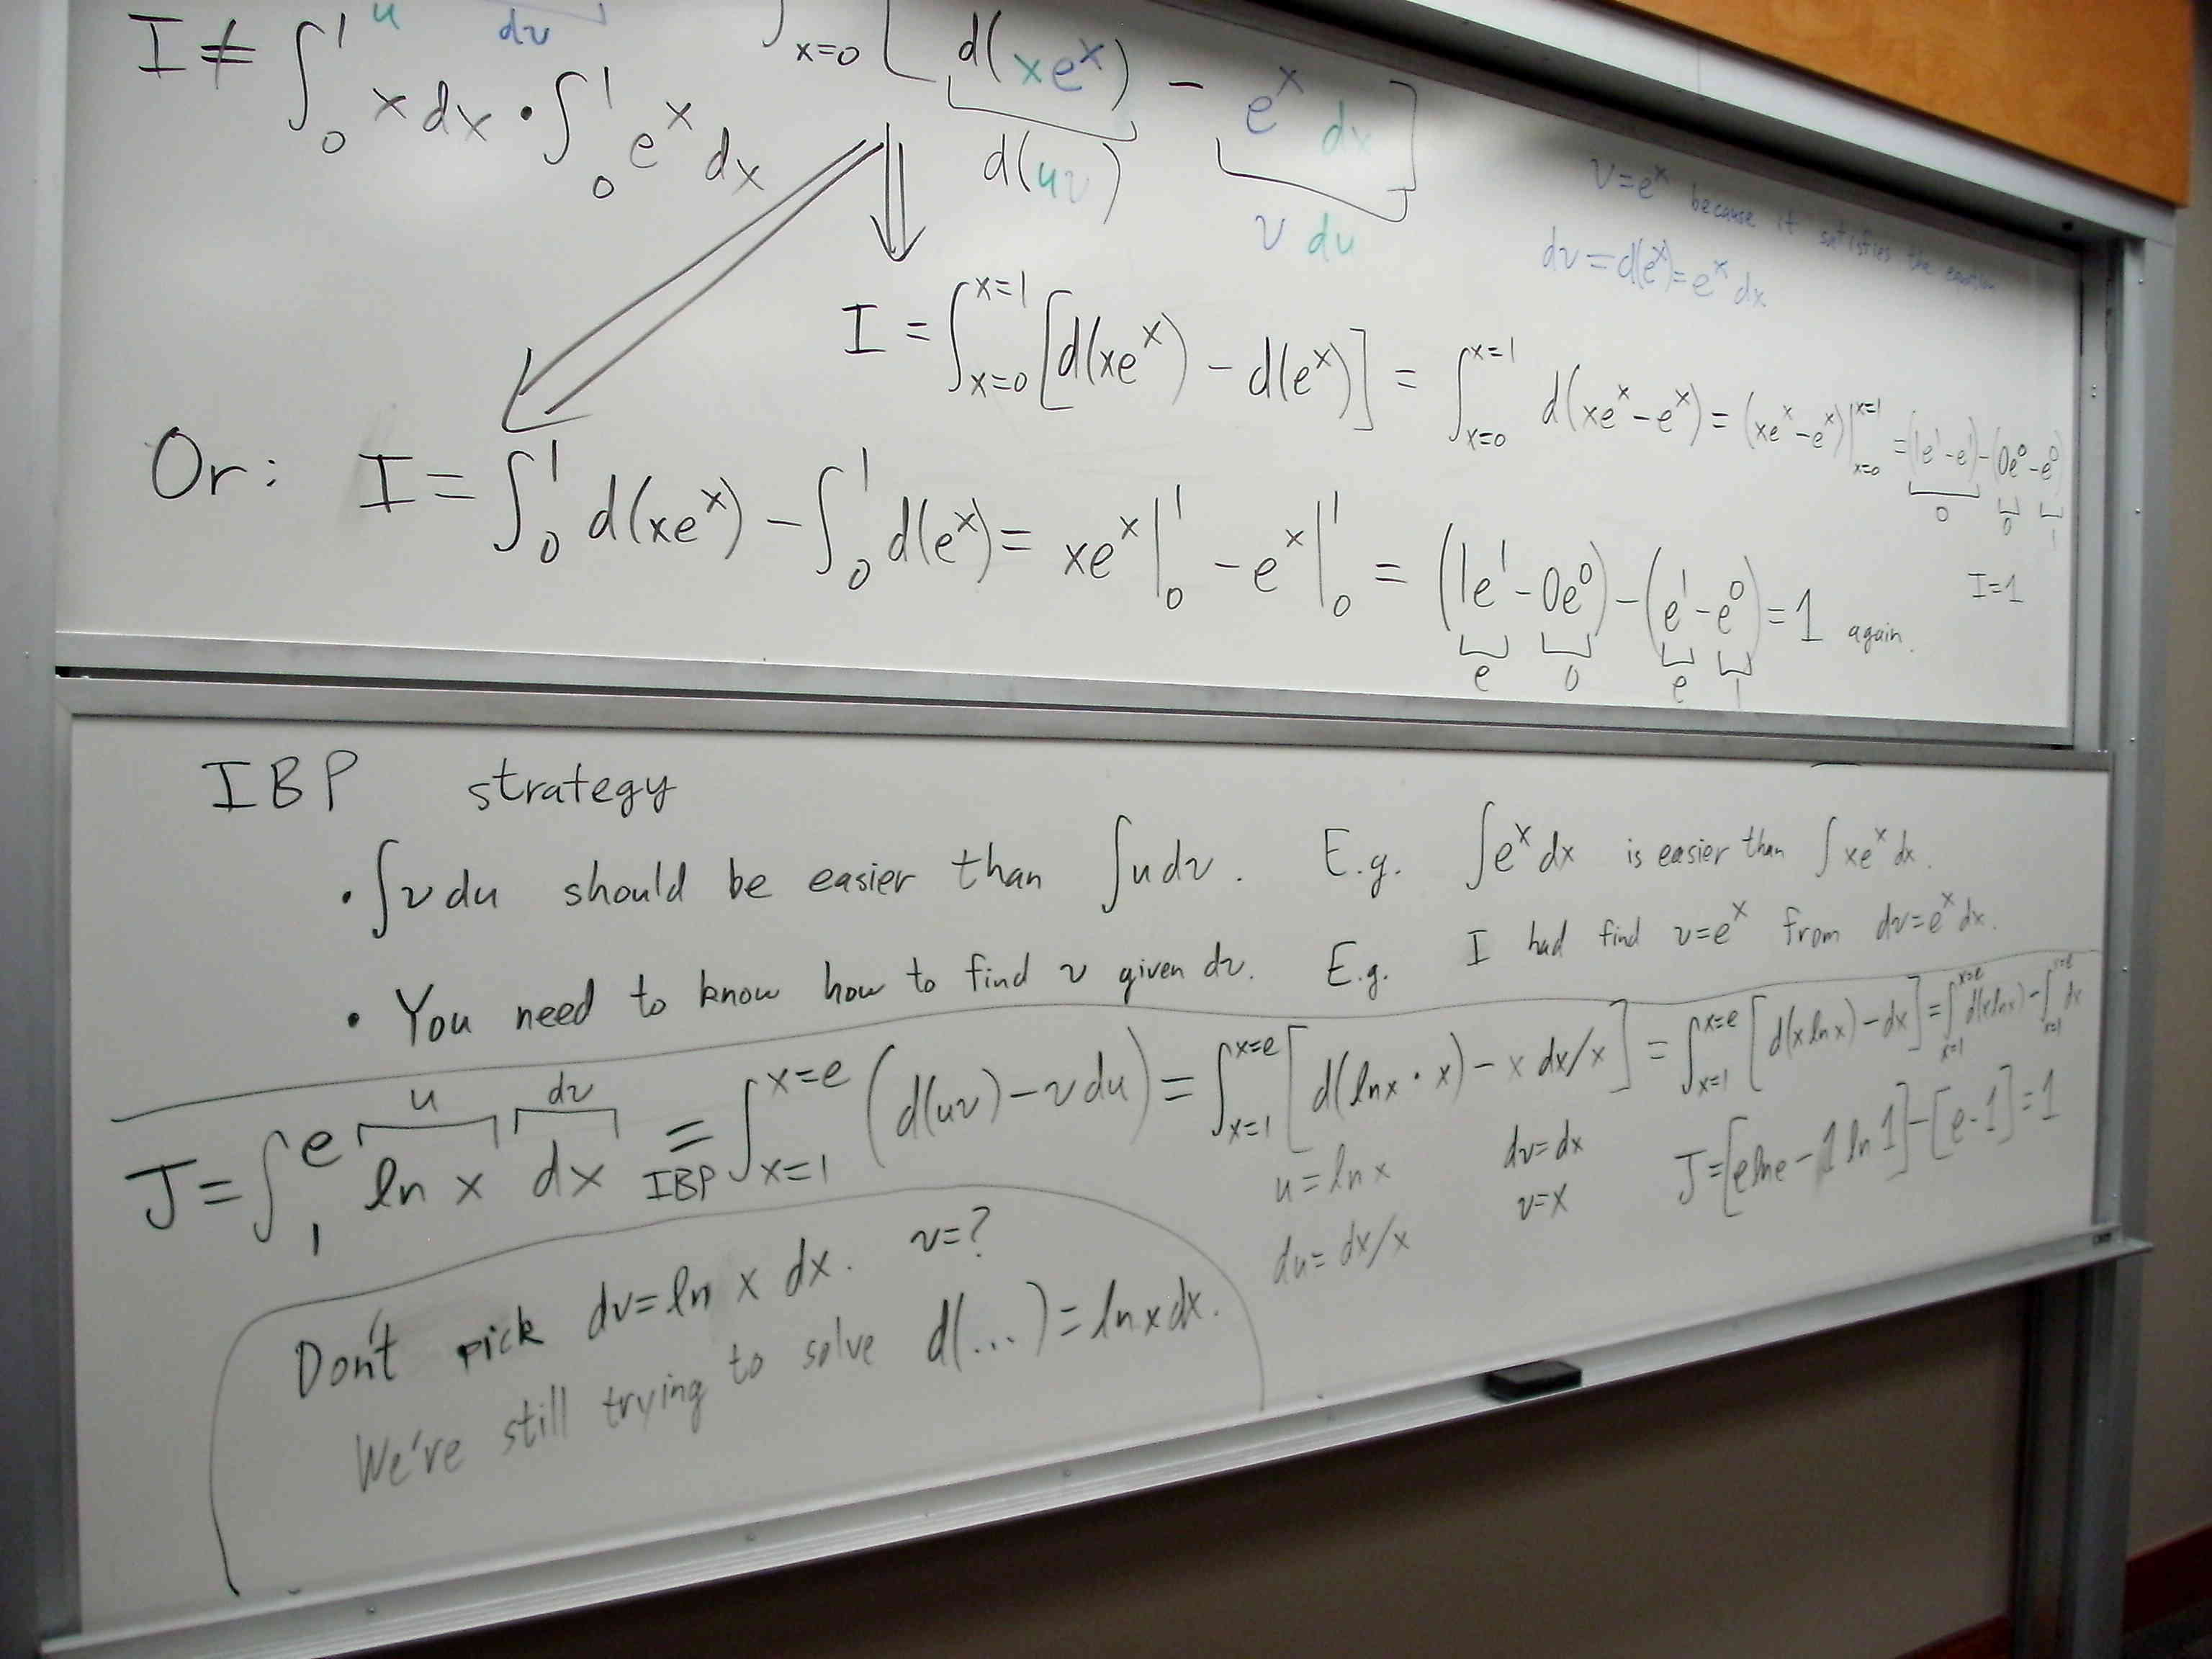 u dv
I ≠ ∫₀¹ x dx · ∫₀¹ eˣ dx
∫ₓ₌₀ [ d(xeˣ) − eˣ dx ]
d(uv) v du
v=eˣ because it satisfies the equation
dv = d(eˣ) = eˣ dx
I = ∫ₓ₌₀ˣ⁼¹ [d(xeˣ) − d(eˣ)] = ∫ₓ₌₀ˣ⁼¹ d(xeˣ−eˣ) = (xeˣ−eˣ)|ₓ₌₀ˣ⁼¹ = (1e¹−e¹)−(0e⁰−e⁰)
0 0 1
I=1
Or: I = ∫₀¹ d(xeˣ) − ∫₀¹ d(eˣ) = xeˣ|₀¹ − eˣ|₀¹ = (1e¹ − 0e⁰) − (e¹ − e⁰) = 1 again.
e 0 e 1
IBP strategy
· ∫v du should be easier than ∫u dv. E.g. ∫eˣ dx is easier than ∫xeˣ dx.
· You need to know how to find v given dv. E.g. I had find v=eˣ from dv=eˣ dx.
u dv
J = ∫₁ᵉ ln x dx = ∫ₓ₌₁ˣ⁼ᵉ (d(uv) − v du) = ∫ₓ₌₁ˣ⁼ᵉ [d(ln x · x) − x dx/x] = ∫ₓ₌₁ˣ⁼ᵉ [d(x ln x) − dx] = ∫ₓ₌₁ˣ⁼ᵉ d(x ln x) − ∫ₓ₌₁ˣ⁼ᵉ dx
IBP
u = ln x dv = dx
du = dx/x v = x
J = [e ln e − 1 ln 1] − [e − 1] = 1
Don't pick dv = ln x dx. v=?
We're still trying to solve d(...) = ln x dx.